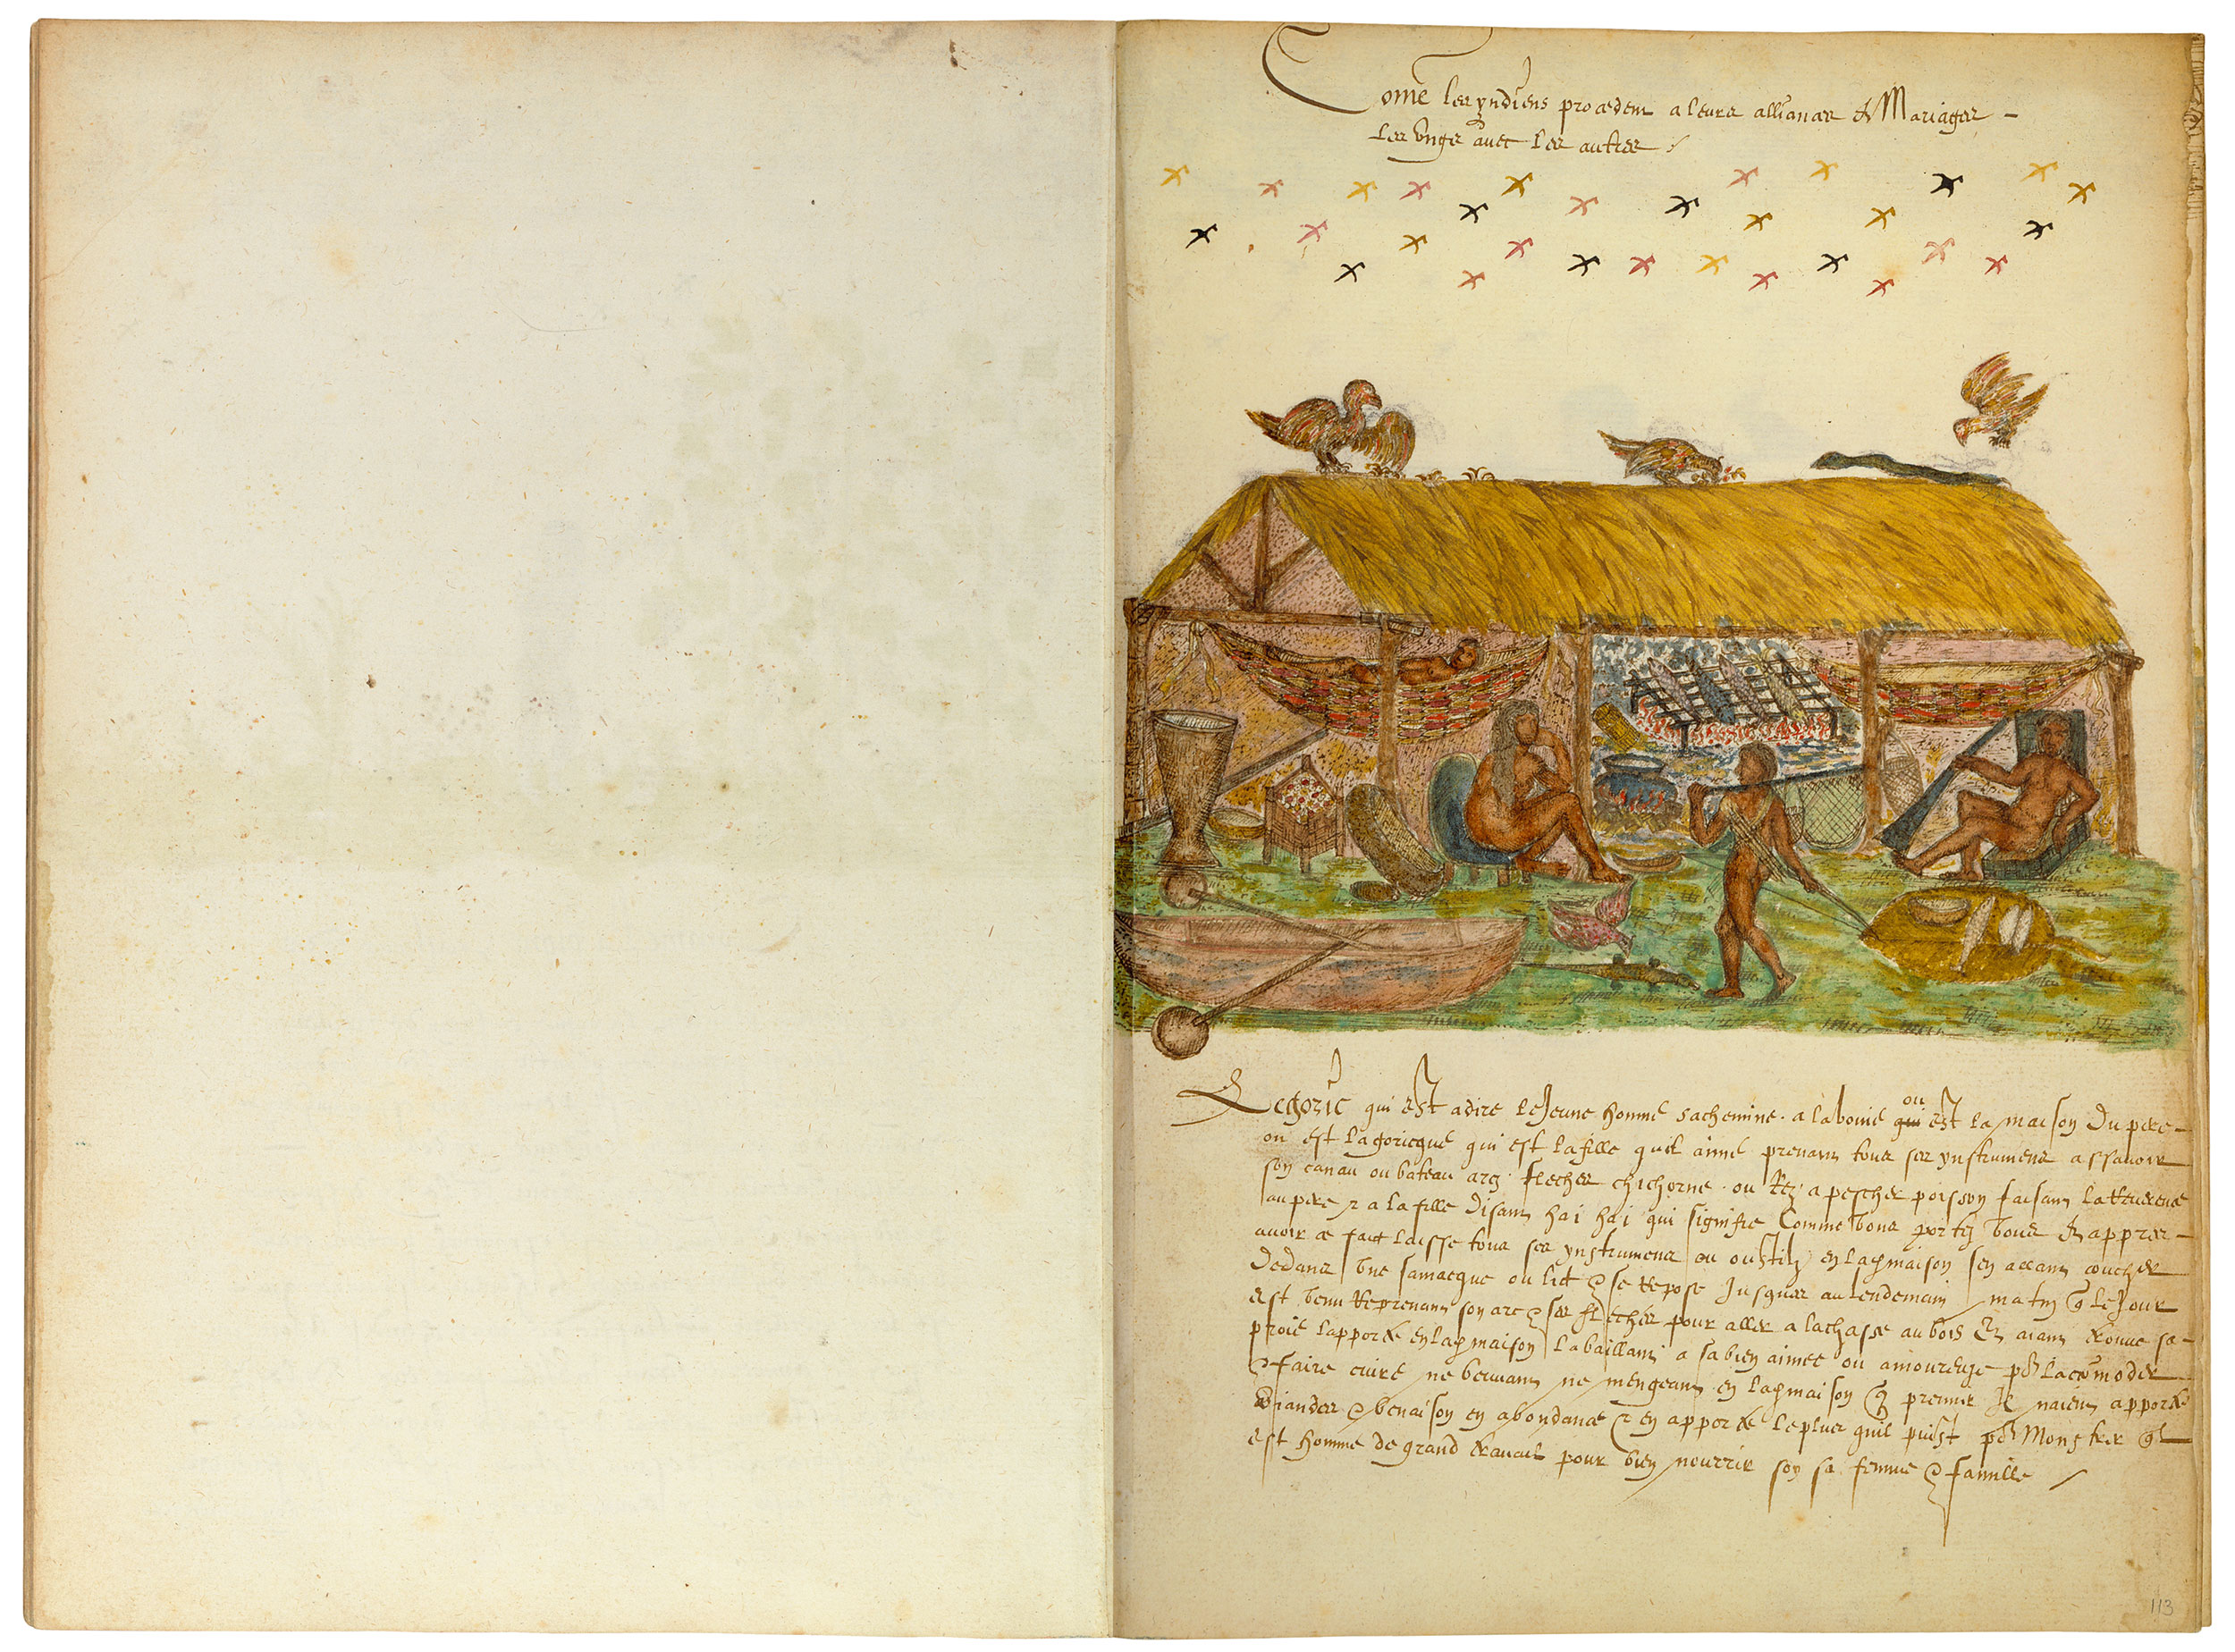 Come les yndiens procedent a leurs alliances et Mariages
les ungs avec les autres
Legoric qui est a dire le Jeune homme sachemine a laboiue ou est la maison du pere
ou est lagoricque qui est la fille quil aime prenant tous ses ynstrumens assavoir
son canau ou bateau arc fleches chichorne ou Retz a pescher poisson faisant la Reverence
au pere et a la fille disant hai hai qui signifie Comme vous portez vous Et appres
avoir ce faict laisse tous ses ynstrumens ou oustilz en la maison sen allant coucher
dedans une samacque ou lict et se repose Jusques au lendemain matin que le Jour
est venu Reprenant son arc et ses fleches pour aller a la chasse au bois Et aiant trouve sa
proie lapporte en la maison la baillant a sa bien aimee ou amoureuse pour lacomoder
et faire cuire ne beuvant ne mengeant en la maison que premier Il naient apporte
viandes et venaison en abondance et en apporte le plus quil puist pour Monstrer quil
est homme de grand travail pour bien nourrir soy sa femme et famille
113